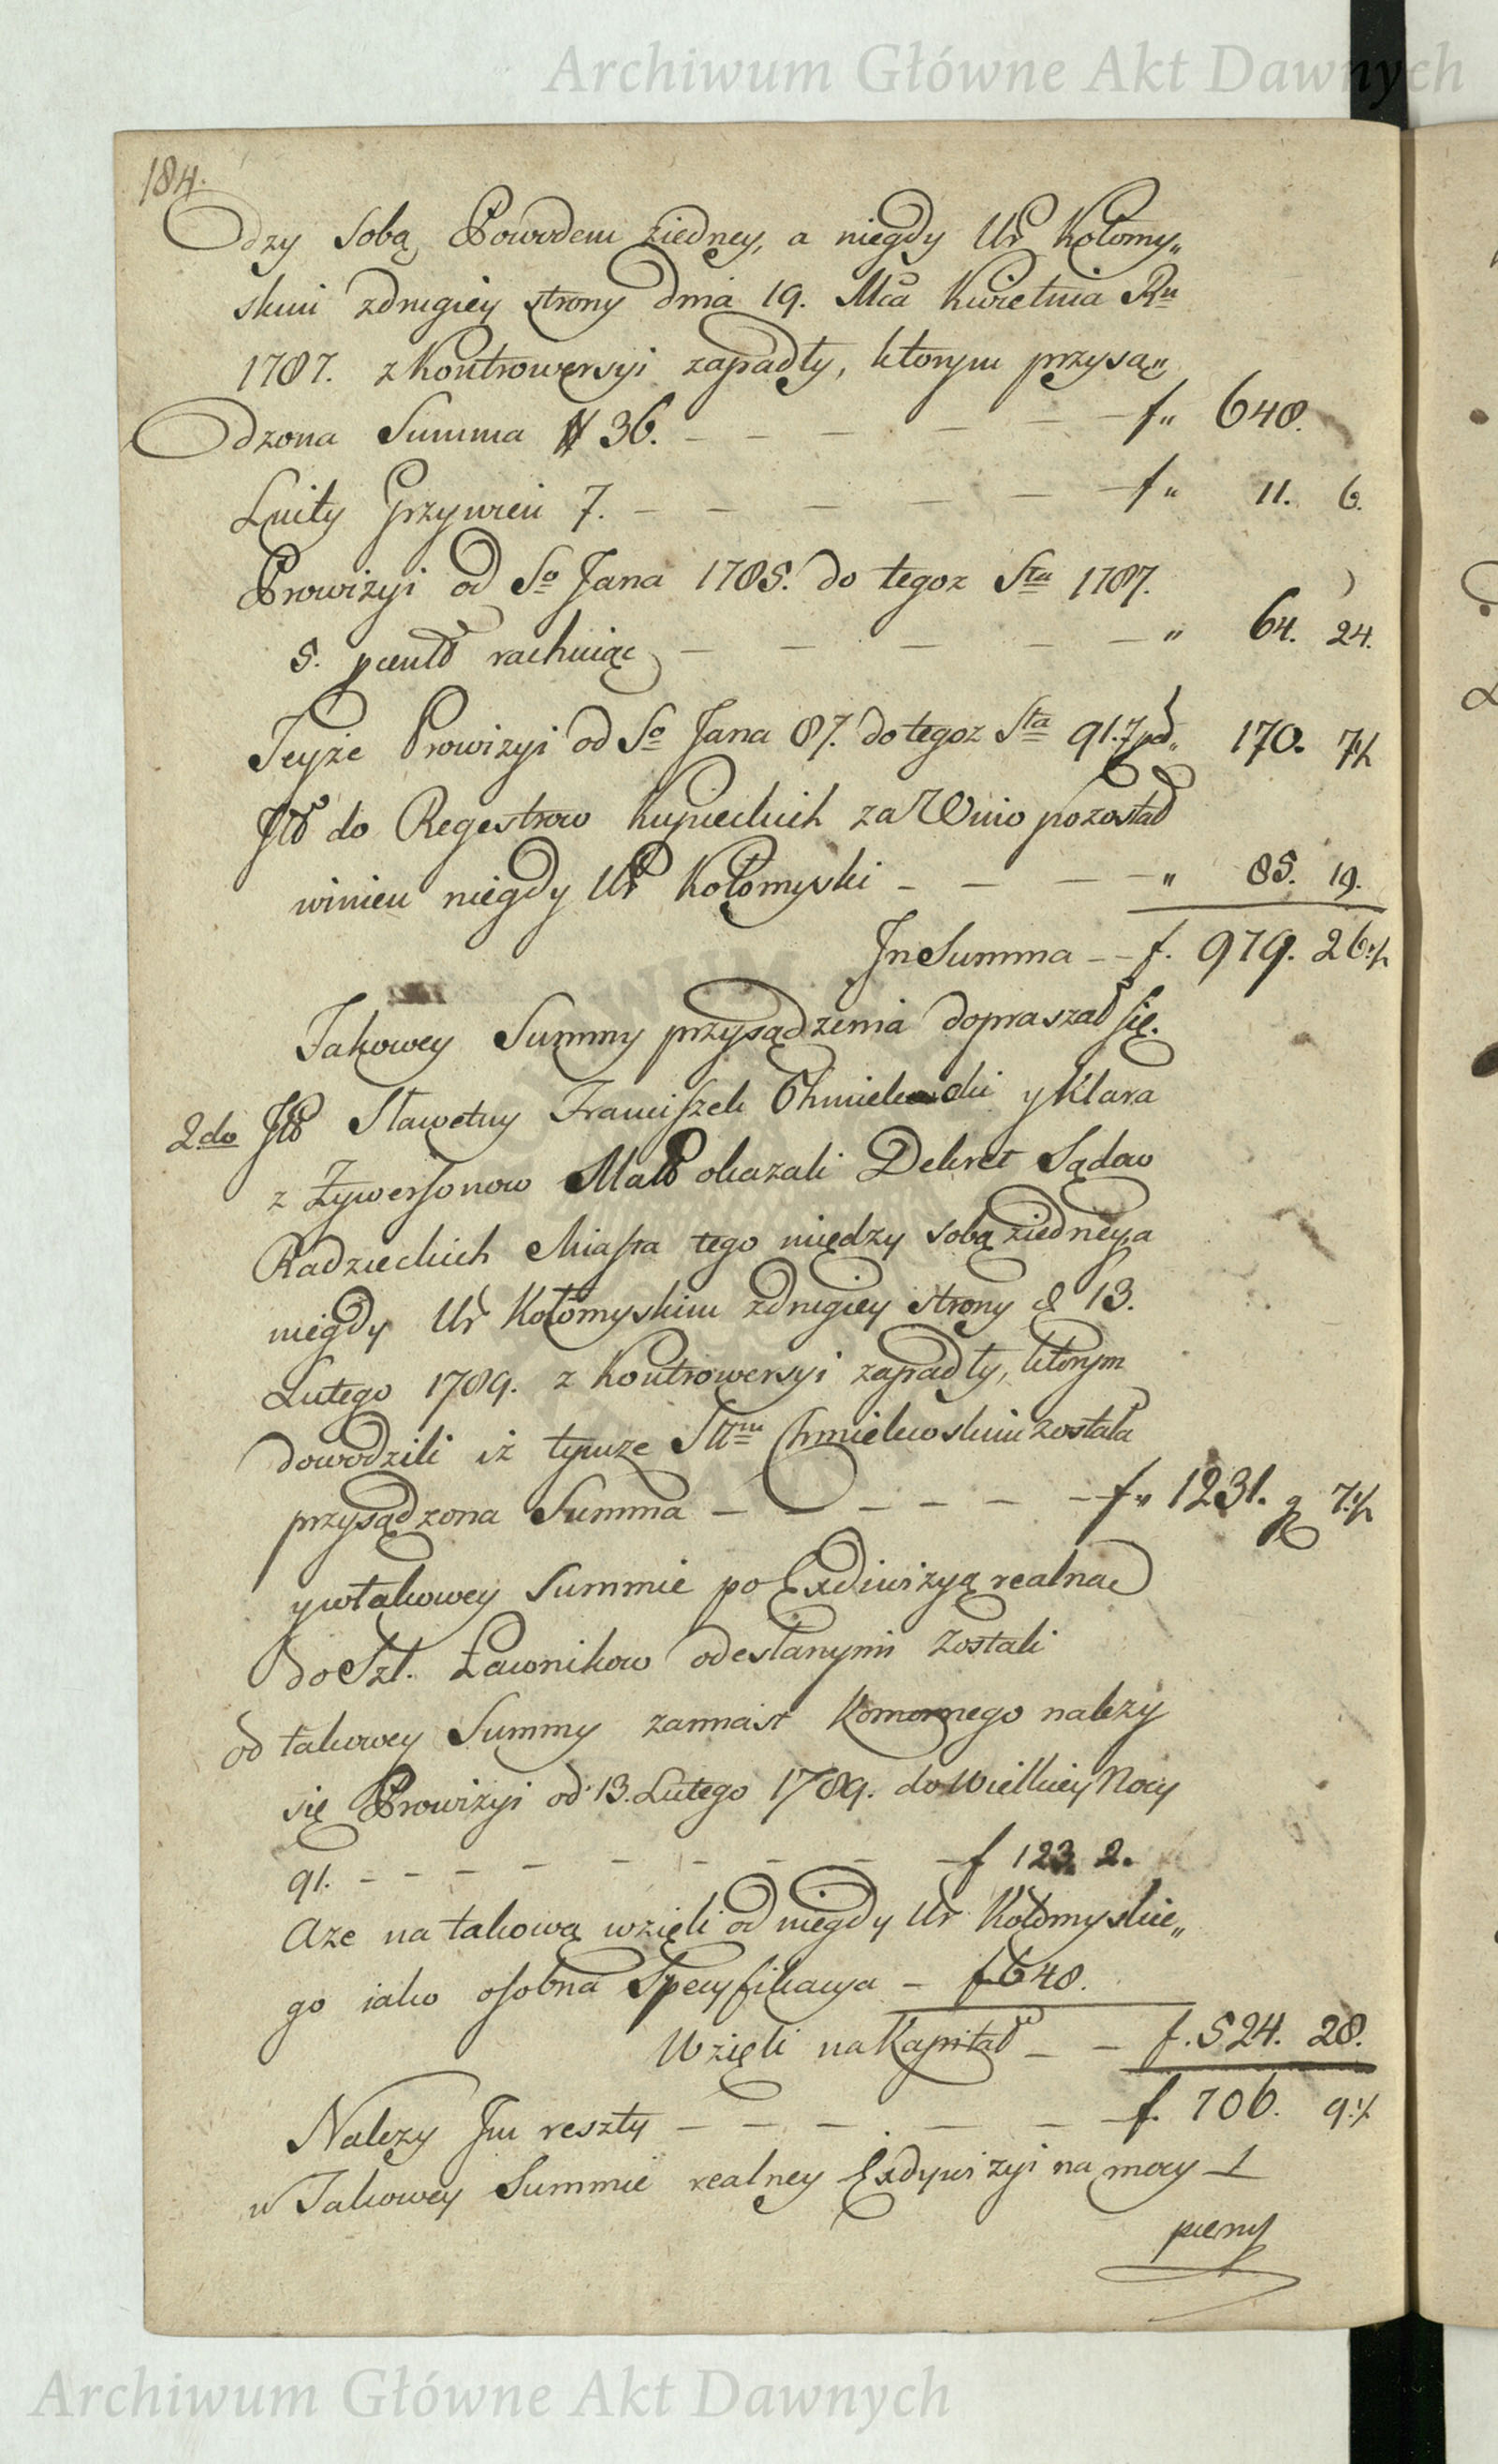 Archiwum Główne Akt Dawnych
184.
dzy sobą Powodem ziedney, a niegdy Ur Kołomy„
skim zdrugiey strony dnia 19. Mca Kwietnia Ru
1787. z Kontrowersyi zapadły, ktorym przysą„
dzona Summa # 36. — — — — — f„ 648.
Luity Grzywien 7. — — — — — f„ 11. 6.
Prowizyi od So Jana 1785. do tegoz Sta 1787.
5. pcentt rachuiąc — — — — — „ 64. 24.
Teyże Prowizyi od So Jana 87. do tegoz Sta 91. 7 pd„ 170. 7½
Itt do Regestrow kupieckich za Wino pozostał
winien niegdy Ur Kołomyski — — — — „ 85. 19.
In Summa — — f. 979. 26½
Jakowey Summy przysądzenia dopraszał się.
2do Itt Sławetny Franciszek Chmielewski y Klara
z Zywersonow Małł okazali Dekret Sądow
Radzieckich Miasta tego między sobą ziedney, a
niegdy Ur Kołomyskim zdrugiey strony d 13.
Lutego 1789. z Kontrowersyi zapadły, ktorym
dowodzili iż tymze Sttm Chmielewskim została
przysądzona Summa — — — — — — f„ 1231. g 7½
y wtakowey Summie po Exdiwizyą realną
do Szl. Ławnikow odesłanymi zostali
od takowey Summy zamiast Komornego należy
się Prowizyi od 13. Lutego 1789. do Wielkiey Nocy
91. — — — — — — — — — f 123. 2.
Aze na takową wzięli od niegdy Ur Kołomyskie„
go iako osobna Specyfikacya — f 648.
Wzięli na Kapitał — — f. 524. 28.
Należy Im reszty — — — — — f. 706. 9½
w Jakowey Summie realney Exdywizyi na mocy
Archiwum Główne Akt Dawnych